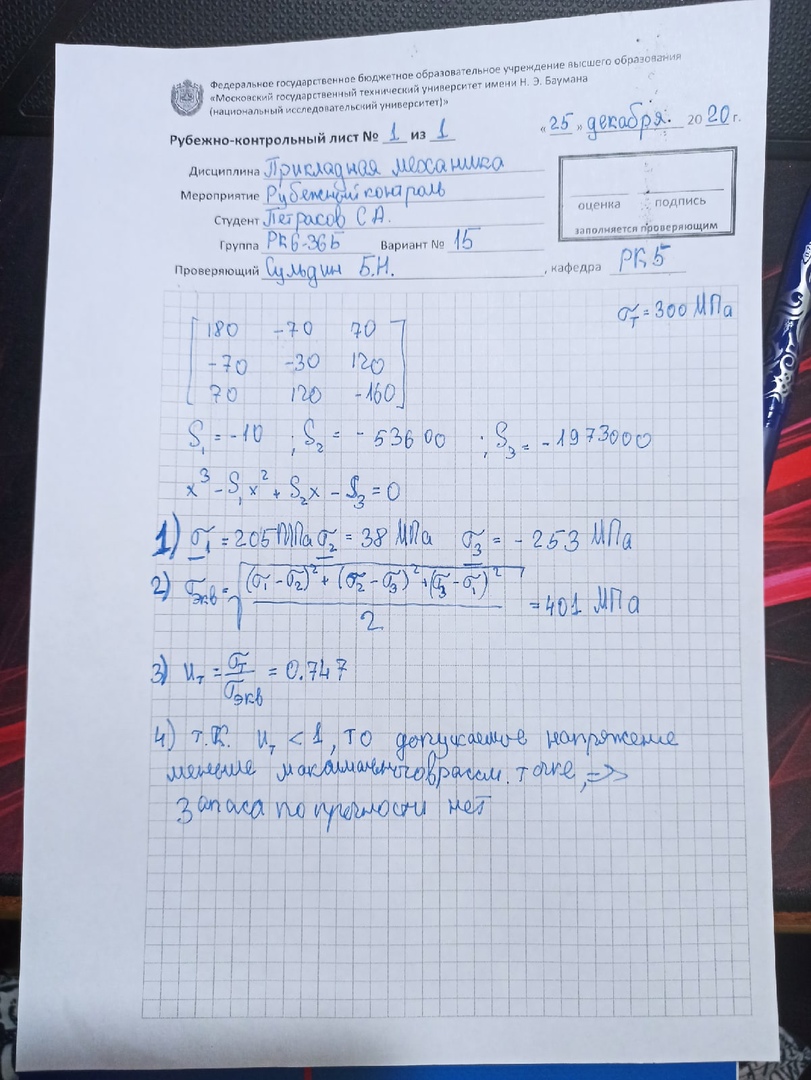 Федеральное государственное бюджетное образовательное учреждение высшего образования
«Московский государственный технический университет имени Н. Э. Баумана
(национальный исследовательский университет)»
Рубежно-контрольный лист № 1 из 1 «25» декабря 2020г.
Дисциплина Прикладная механика
Мероприятие Рубежный контроль
Студент Петрасов С А.
Группа РК6-36Б Вариант № 15
Проверяющий Сульдин Б.Н. , кафедра РК5
оценка подпись
заполняется проверяющим
σт = 300 МПа
180 -70 70
-70 -30 120
70 120 -160
S₁ = -10 ; S₂ = -53600 ; S₃ = -1973000
x³ - S₁x² + S₂x - S₃ = 0
1) σ₁ = 205 МПа σ₂ = 38 МПа σ₃ = -253 МПа
2) σэкв = √((σ₁ - σ₂)² + (σ₂ - σ₃)² + (σ₃ - σ₁)²)/2 = 401 МПа
3) nт = σт/σэкв = 0.747
4) т.к. nт < 1, то допускаемое напряжение
меньше максимального в рассм. точке, =>
запаса по прочности нет